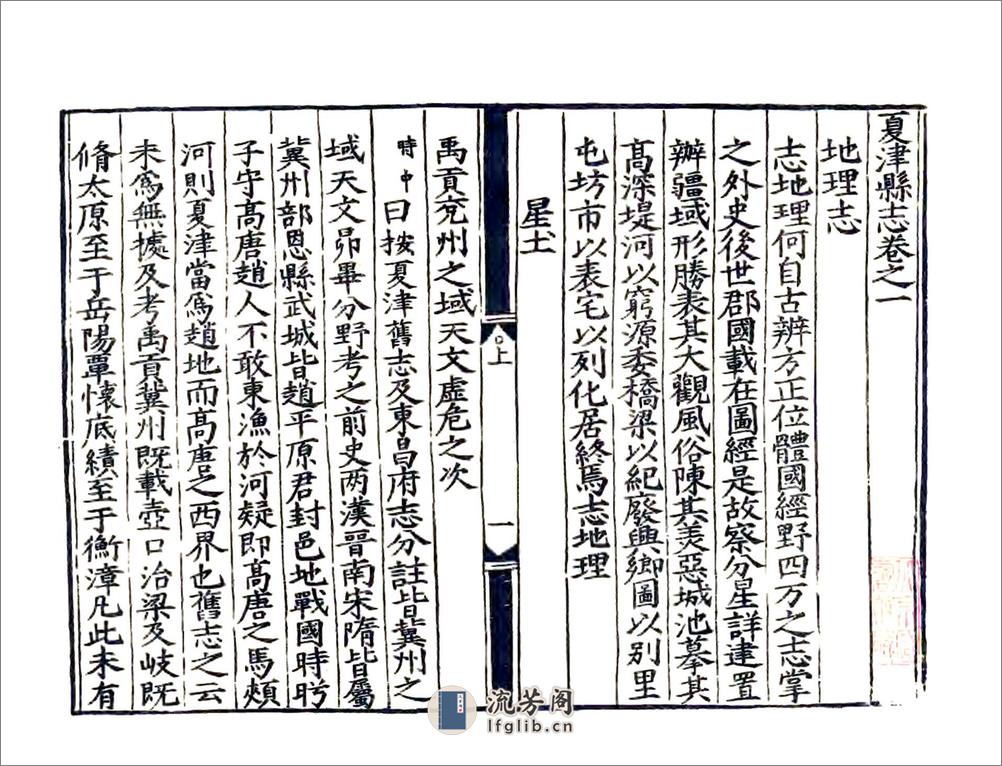 夏津縣志卷之一
地理志
志地理何自古辨方正位體國經野四方之志掌
之外史後世郡國載在圖經是故察分星詳建置
辦疆域形勝表其大觀風俗陳其美惡城池摹其
高深堤河以窮源委橋梁以紀廢興鄉圖以別里
屯坊市以表宅以列化居終焉志地理
星土
禹貢兗州之域天文虛危之次
時中曰按夏津舊志及東昌府志分註皆冀州之
域天文昴畢分野考之前史两漢晉南宋隋皆屬
冀州部恩縣武城皆趙平原君封邑地戰國時盻
子守高唐趙人不敢東漁於河疑即高唐之馬頰
河則夏津當爲趙地而高唐之西界也舊志之云
未爲無據及考禹貢冀州既載壺口治梁及岐既
脩太原至于岳陽覃懷厎績至于衡漳凡此未有
上
一
流芳阁
lfglib.cn